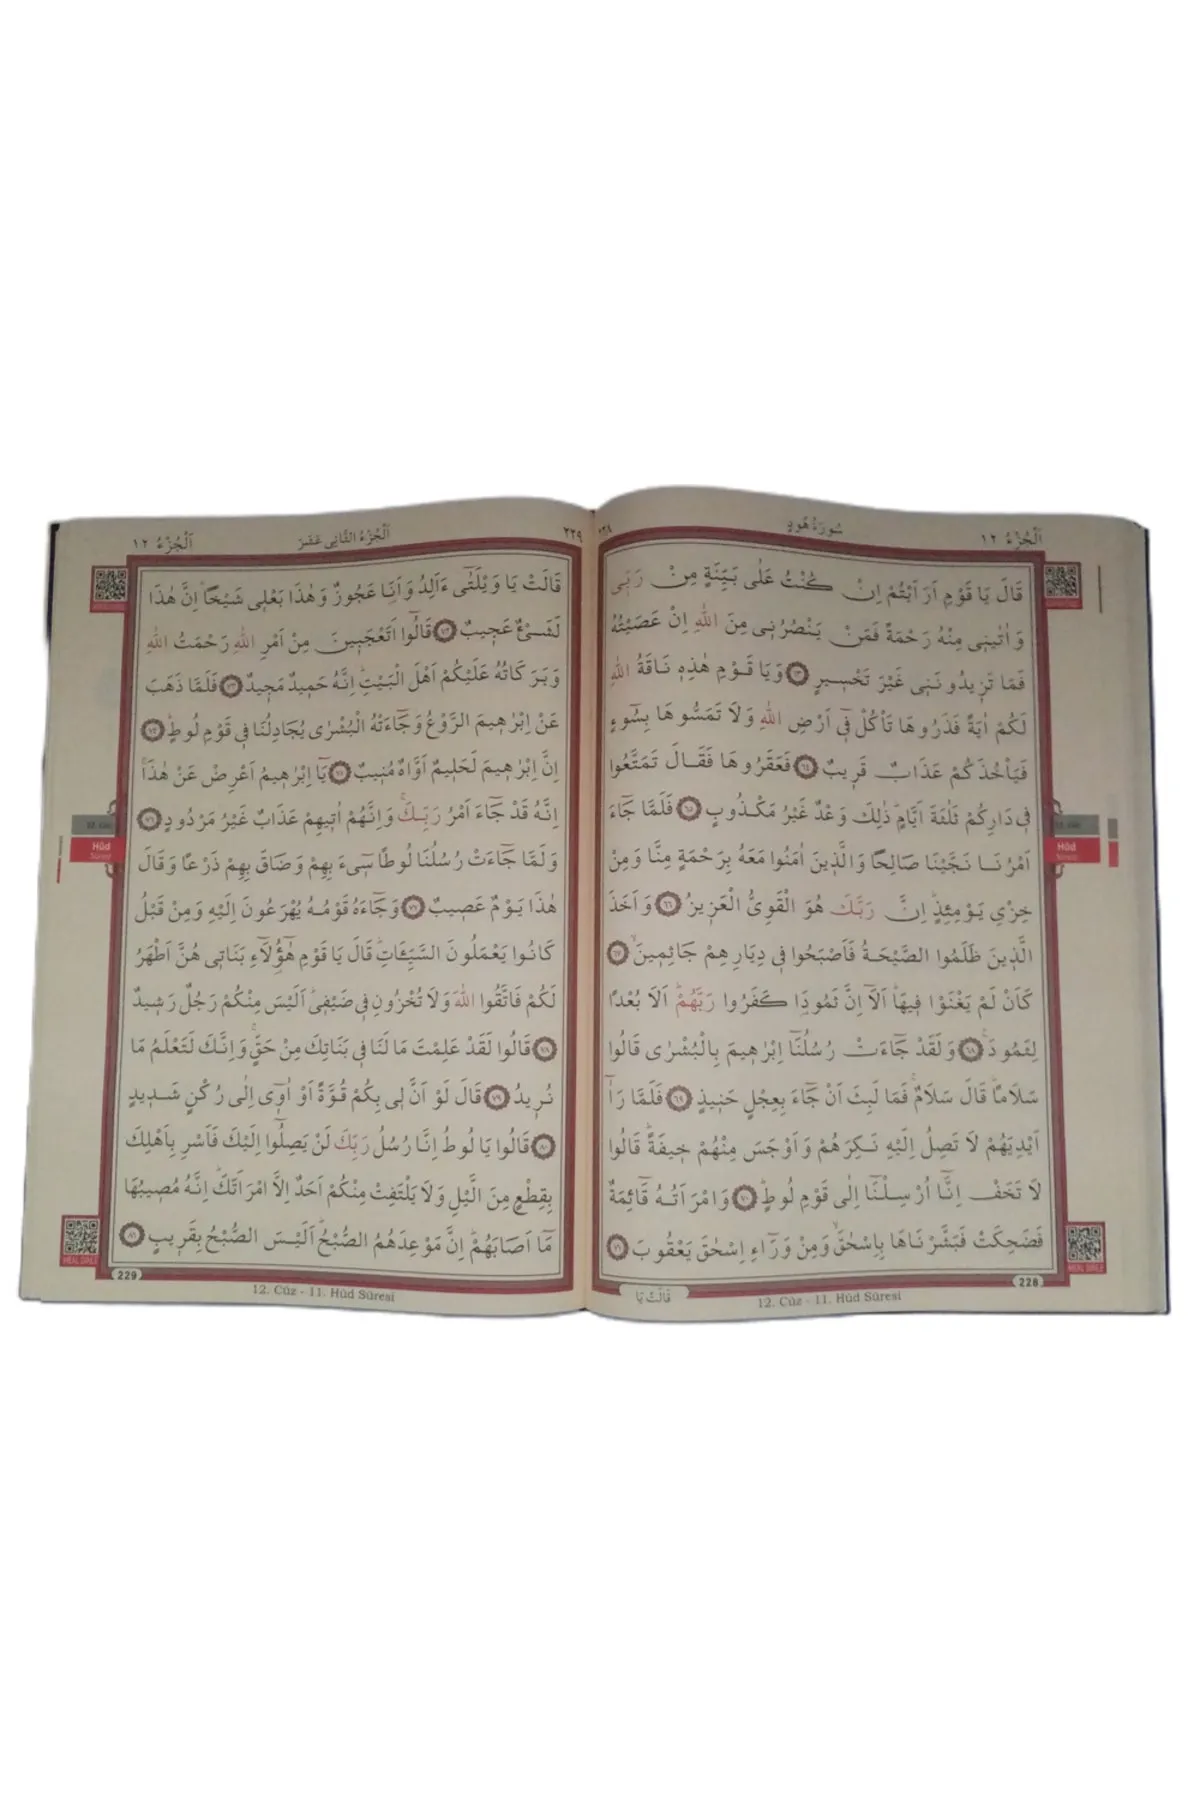 اَلْجُزْءُ ١٢
سُورَةُ هُودٍ
٢٢٨
قَالَ يَا قَوْمِ اَرَاَيْتُمْ اِنْ كُنْتُ عَلٰى بَيِّنَةٍ مِنْ رَبّٖى
وَاٰتٰينٖى مِنْهُ رَحْمَةً فَمَنْ يَنْصُرُنٖى مِنَ اللّٰهِ اِنْ عَصَيْتُهُ
فَمَا تَزٖيدُونَنٖى غَيْرَ تَخْسٖيرٍ ﴿٦٣﴾ وَيَا قَوْمِ هٰذِهٖ نَاقَةُ اللّٰهِ
لَكُمْ اٰيَةً فَذَرُوهَا تَاْكُلْ فٖٓى اَرْضِ اللّٰهِ وَلَا تَمَسُّوهَا بِسُٓوءٍ
فَيَاْخُذَكُمْ عَذَابٌ قَرٖيبٌ ﴿٦٤﴾ فَعَقَرُوهَا فَقَالَ تَمَتَّعُوا
فٖى دَارِكُمْ ثَلٰثَةَ اَيَّامٍ ذٰلِكَ وَعْدٌ غَيْرُ مَكْذُوبٍ ﴿٦٥﴾ فَلَمَّا جَٓاءَ
اَمْرُنَا نَجَّيْنَا صَالِحًا وَالَّذٖينَ اٰمَنُوا مَعَهُ بِرَحْمَةٍ مِنَّا وَمِنْ
خِزْىِ يَوْمِئِذٍ اِنَّ رَبَّكَ هُوَ الْقَوِىُّ الْعَزٖيزُ ﴿٦٦﴾ وَاَخَذَ
الَّذٖينَ ظَلَمُوا الصَّيْحَةُ فَاَصْبَحُوا فٖى دِيَارِهِمْ جَاثِمٖينَ ﴿٦٧﴾
كَاَنْ لَمْ يَغْنَوْا فٖيهَا اَلَٓا اِنَّ ثَمُودَا كَفَرُوا رَبَّهُمْ اَلَا بُعْدًا
لِثَمُودَ ﴿٦٨﴾ وَلَقَدْ جَٓاءَتْ رُسُلُنَٓا اِبْرٰهٖيمَ بِالْبُشْرٰى قَالُوا
سَلَامًا قَالَ سَلَامٌ فَمَا لَبِثَ اَنْ جَٓاءَ بِعِجْلٍ حَنٖيذٍ ﴿٦٩﴾ فَلَمَّا رَآٰ
اَيْدِيَهُمْ لَا تَصِلُ اِلَيْهِ نَكِرَهُمْ وَاَوْجَسَ مِنْهُمْ خٖيفَةً قَالُوا
لَا تَخَفْ اِنَّٓا اُرْسِلْنَٓا اِلٰى قَوْمِ لُوطٍ ﴿٧٠﴾ وَامْرَاَتُهُ قَٓائِمَةٌ
فَضَحِكَتْ فَبَشَّرْنَاهَا بِاِسْحٰقَ وَمِنْ وَرَٓاءِ اِسْحٰقَ يَعْقُوبَ ﴿٧١﴾
228
قَالَتْ يَا
12. Cüz - 11. Hûd Sûresi
Hûd
Sûresi
٢٢٩
اَلْجُزْءُ الثَّانٖى عَشَرَ
اَلْجُزْءُ ١٢
قَالَتْ يَا وَيْلَتٰٓى ءَاَلِدُ وَاَنَا عَجُوزٌ وَهٰذَا بَعْلٖى شَيْخًا اِنَّ هٰذَا
لَشَىْءٌ عَجٖيبٌ ﴿٧٢﴾ قَالُٓوا اَتَعْجَبٖينَ مِنْ اَمْرِ اللّٰهِ رَحْمَتُ اللّٰهِ
وَبَرَكَاتُهُ عَلَيْكُمْ اَهْلَ الْبَيْتِ اِنَّهُ حَمٖيدٌ مَجٖيدٌ ﴿٧٣﴾ فَلَمَّا ذَهَبَ
عَنْ اِبْرٰهٖيمَ الرَّوْعُ وَجَٓاءَتْهُ الْبُشْرٰى يُجَادِلُنَا فٖى قَوْمِ لُوطٍ ﴿٧٤﴾
اِنَّ اِبْرٰهٖيمَ لَحَلٖيمٌ اَوَّاهٌ مُنٖيبٌ ﴿٧٥﴾ يَٓا اِبْرٰهٖيمُ اَعْرِضْ عَنْ هٰذَا
اِنَّهُ قَدْ جَٓاءَ اَمْرُ رَبِّكَ وَاِنَّهُمْ اٰتٖيهِمْ عَذَابٌ غَيْرُ مَرْدُودٍ ﴿٧٦﴾
وَلَمَّا جَٓاءَتْ رُسُلُنَا لُوطًا سٖٓىءَ بِهِمْ وَضَاقَ بِهِمْ ذَرْعًا وَقَالَ
هٰذَا يَوْمٌ عَصٖيبٌ ﴿٧٧﴾ وَجَٓاءَهُ قَوْمُهُ يُهْرَعُونَ اِلَيْهِ وَمِنْ قَبْلُ
كَانُوا يَعْمَلُونَ السَّيِّـَٔاتِ قَالَ يَا قَوْمِ هٰٓؤُلَٓاءِ بَنَاتٖى هُنَّ اَطْهَرُ
لَكُمْ فَاتَّقُوا اللّٰهَ وَلَا تُخْزُونِ فٖى ضَيْفٖى اَلَيْسَ مِنْكُمْ رَجُلٌ رَشٖيدٌ
﴿٧٨﴾ قَالُوا لَقَدْ عَلِمْتَ مَا لَنَا فٖى بَنَاتِكَ مِنْ حَقٍّ وَاِنَّكَ لَتَعْلَمُ مَا
نُرٖيدُ ﴿٧٩﴾ قَالَ لَوْ اَنَّ لٖى بِكُمْ قُوَّةً اَوْ اٰوٖٓى اِلٰى رُكْنٍ شَدٖيدٍ
﴿٨٠﴾ قَالُوا يَا لُوطُ اِنَّا رُسُلُ رَبِّكَ لَنْ يَصِلُٓوا اِلَيْكَ فَاَسْرِ بِاَهْلِكَ
بِقِطْعٍ مِنَ الَّيْلِ وَلَا يَلْتَفِتْ مِنْكُمْ اَحَدٌ اِلَّا امْرَاَتَكَ اِنَّهُ مُصٖيبُهَا
مَٓا اَصَابَهُمْ اِنَّ مَوْعِدَهُمُ الصُّبْحُ اَلَيْسَ الصُّبْحُ بِقَرٖيبٍ ﴿٨١﴾
229
12. Cüz - 11. Hûd Sûresi
Hûd
Sûresi